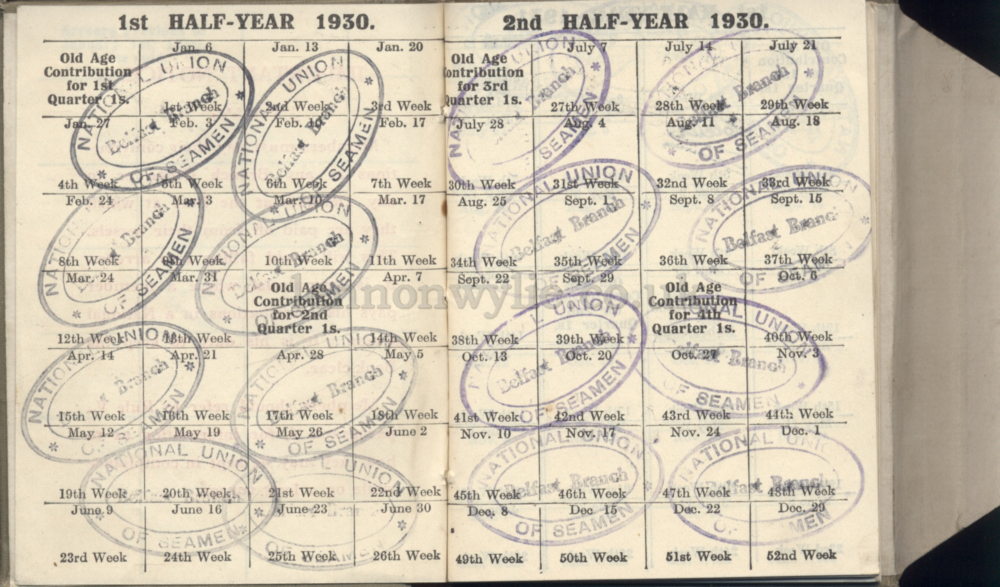 1st HALF-YEAR 1930.
Old Age Contribution for 1st Quarter 1s.
Jan. 6 Jan. 13 Jan. 20
1st Week 2nd Week 3rd Week
Jan. 27 Feb. 3 Feb. 10 Feb. 17
4th Week 5th Week 6th Week 7th Week
Feb. 24 Mar. 3 Mar. 10 Mar. 17
8th Week 9th Week 10th Week 11th Week
Mar. 24 Mar. 31 Old Age Contribution for 2nd Quarter 1s. Apr. 7
12th Week 13th Week 14th Week
Apr. 14 Apr. 21 Apr. 28 May 5
15th Week 16th Week 17th Week 18th Week
May 12 May 19 May 26 June 2
19th Week 20th Week 21st Week 22nd Week
June 9 June 16 June 23 June 30
23rd Week 24th Week 25th Week 26th Week
NATIONAL UNION OF SEAMEN
Belfast Branch
2nd HALF-YEAR 1930.
Old Age Contribution for 3rd Quarter 1s.
July 7 July 14 July 21
27th Week 28th Week 29th Week
July 28 Aug. 4 Aug. 11 Aug. 18
30th Week 31st Week 32nd Week 33rd Week
Aug. 25 Sept. 1 Sept. 8 Sept. 15
34th Week 35th Week 36th Week 37th Week
Sept. 22 Sept. 29 Old Age Contribution for 4th Quarter 1s. Oct. 6
38th Week 39th Week 40th Week
Oct. 13 Oct. 20 Oct. 27 Nov. 3
41st Week 42nd Week 43rd Week 44th Week
Nov. 10 Nov. 17 Nov. 24 Dec. 1
45th Week 46th Week 47th Week 48th Week
Dec. 8 Dec. 15 Dec. 22 Dec. 29
49th Week 50th Week 51st Week 52nd Week
NATIONAL UNION OF SEAMEN
Belfast Branch